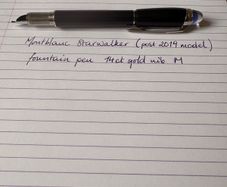 Montblanc Starwalker (post 2019 model)
fountain pen 14ct gold nib M